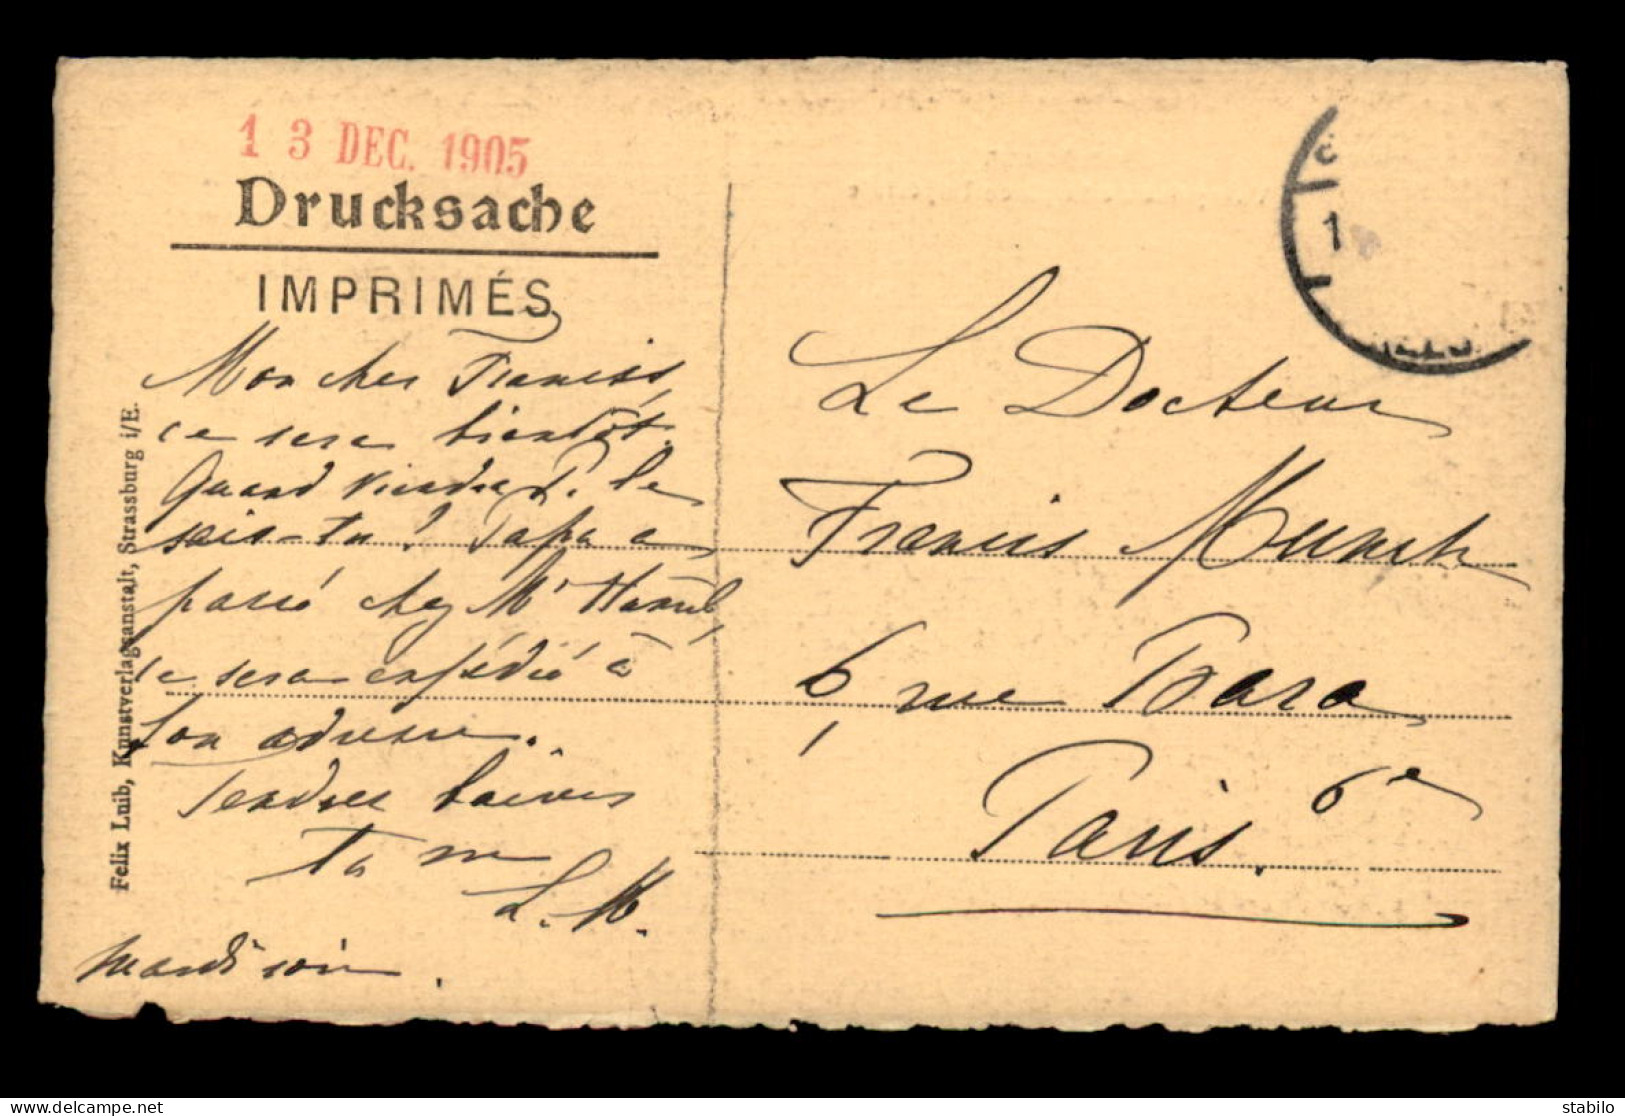 1 3 DEC. 1905
Drucksache
IMPRIMÉS
Mon cher Francis,
ce sera bientôt.
Quand viendra P. le
sais-tu ? Papa a
passé chez Mr
ce sera expédié à
ton adresse.
Tendres baisers
ta m
L. M.
mardi soir.
Felix Luib, Kunstverlagsanstalt, Strassburg i/E.
1
Le Docteur
Francis Munch
6, rue Bara
Paris. 6e
stabilo